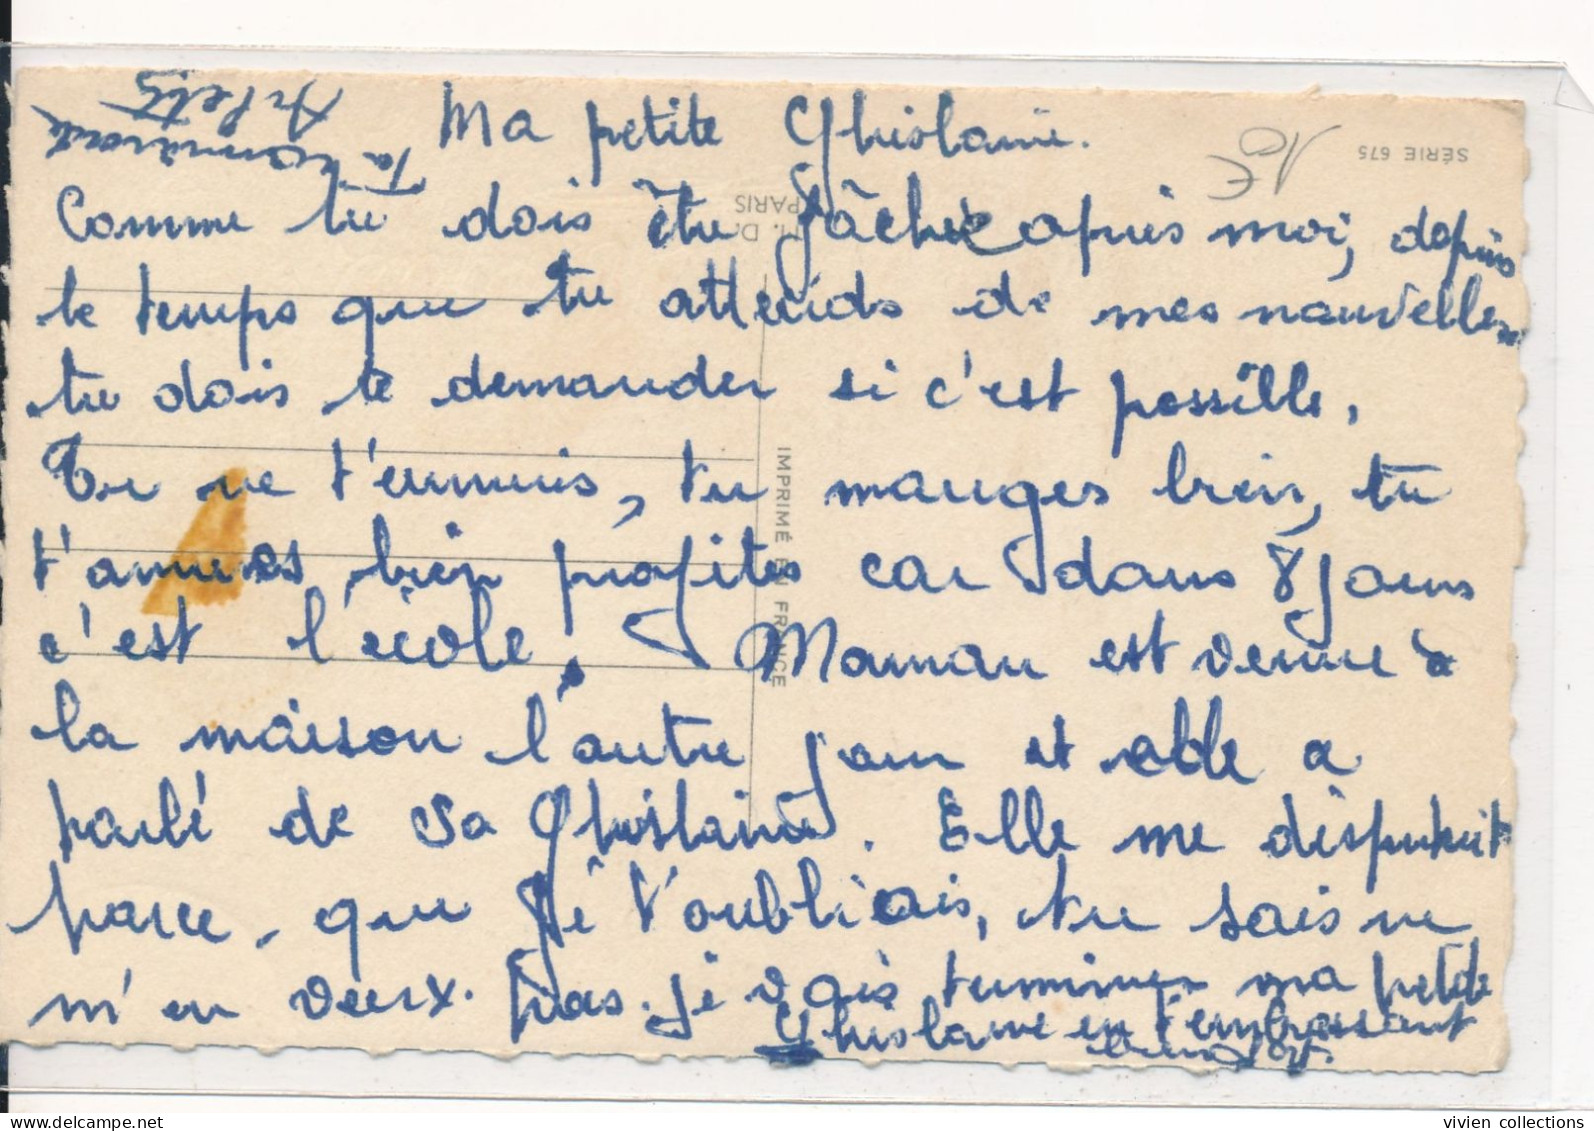 Ma petite Ghislaine.
Comme tu dois être fâchée apuis moi, depuis
le temps que tu attends de mes nouvelles
tu dois te demander si c'est possible.
Tu ne t'ennuis, tu manges bien, tu
t'amuses, bien profites car dans 8 jours
c'est l'école. Maman est venue à
la maison l'autre jour et elle a
parlé de sa Ghislaine. Elle me disputait
parce que je t'oubliais, tu sais ne
m'en veux pas. je vais terminer ma petite
Ghislaine en t'embrassant
bien fort.
Ta camarade
SÉRIE 675
10€
PARIS
IMPRIMÉ EN FRANCE
vivien collections